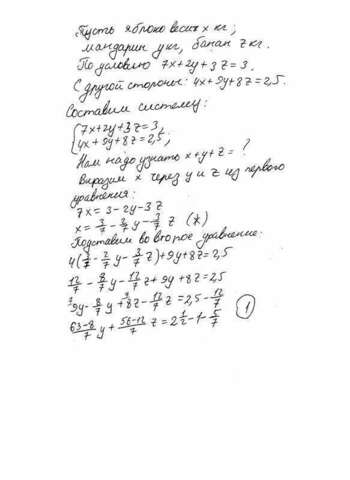 Пусть яблоко весит x кг;
мандарин y кг, банан z кг.
По условию 7x+2y+3z=3.
С другой стороны: 4x+9y+8z=2,5.
Составим систему:
{7x+2y+3z=3,
4x+9y+8z=2,5,
Нам надо узнать x+y+z=?
Выразим x через y и z из первого
уравнения:
7x=3-2y-3z
x=3/7-2/7y-3/7z (*)
Подставим во второе уравнение:
4(3/7-2/7y-3/7z)+9y+8z=2,5
12/7-8/7y-12/7z+9y+8z=2,5
9y-8/7y+8z-12/7z=2,5-12/7
(63-8)/7y+(56-12)/7z=2 1/2-1-5/7
1